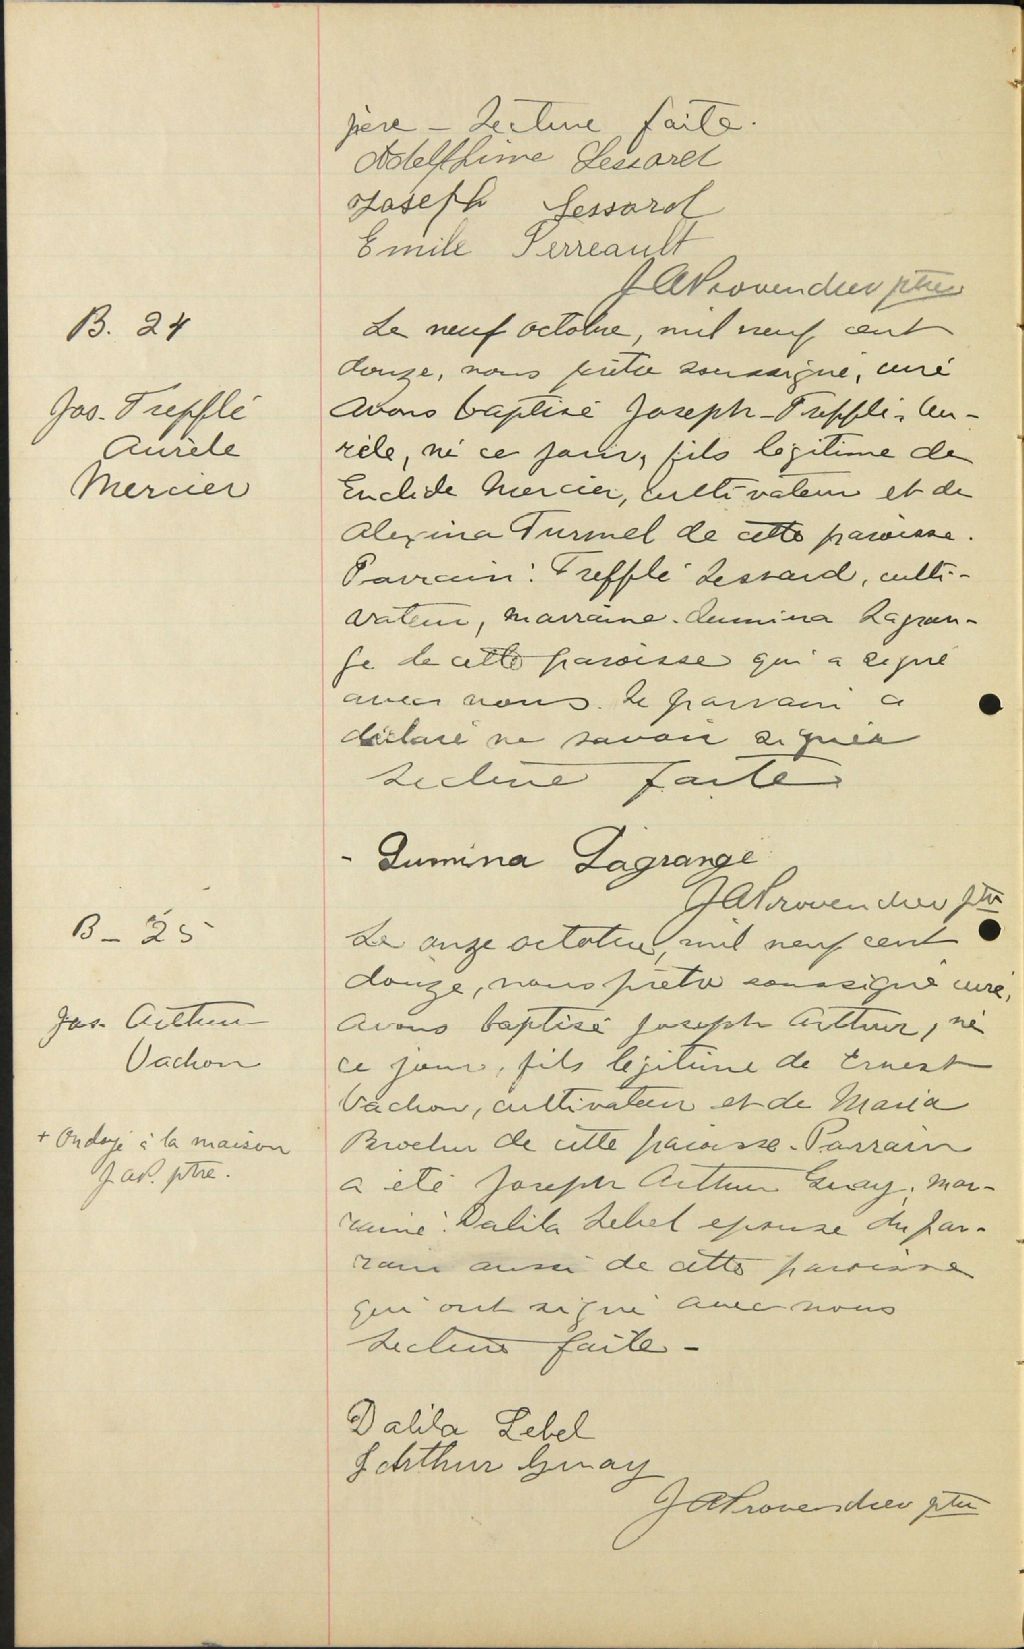 père - Lecture faite.
Adelphine Lessard
Joseph Lessard
Emile Perreault
JAProvencher ptre
B. 24
Jos. Trefflé
Aurèle
Mercier
Le neuf octobre, mil neuf cent
douze, nous prêtre soussigné, curé
avons baptisé Joseph-Trefflé-Au-
rèle, né ce jour, fils légitime de
Euclide Mercier, cultivateur et de
Alexina Turmel de cette paroisse.
Parrain: Trefflé Lessard, culti-
vateur, marraine. Lumina Lagran-
ge de cette paroisse qui a signé
avec nous. Le parrain a
déclaré ne savoir signer
Lecture faite
- Lumina Lagrange
JAProvencher ptre
B - 25
Jos. Arthur
Vachon
+ Ondoyé à la maison
J.A.P. ptre.
Le onze octobre, mil neuf cent
douze, nous prêtre soussigné curé,
avons baptisé Joseph Arthur, né
ce jour, fils légitime de Ernest
Vachon, cultivateur et de Maria
Brochu de cette paroisse. Parrain
a été Joseph Arthur Guay, mar-
raine: Dalila Lebel epouse du par-
rain aussi de cette paroisse
qui ont signé avec nous
Lecture faite -
Dalila Lebel
J Arthur Guay
JAProvencher ptre